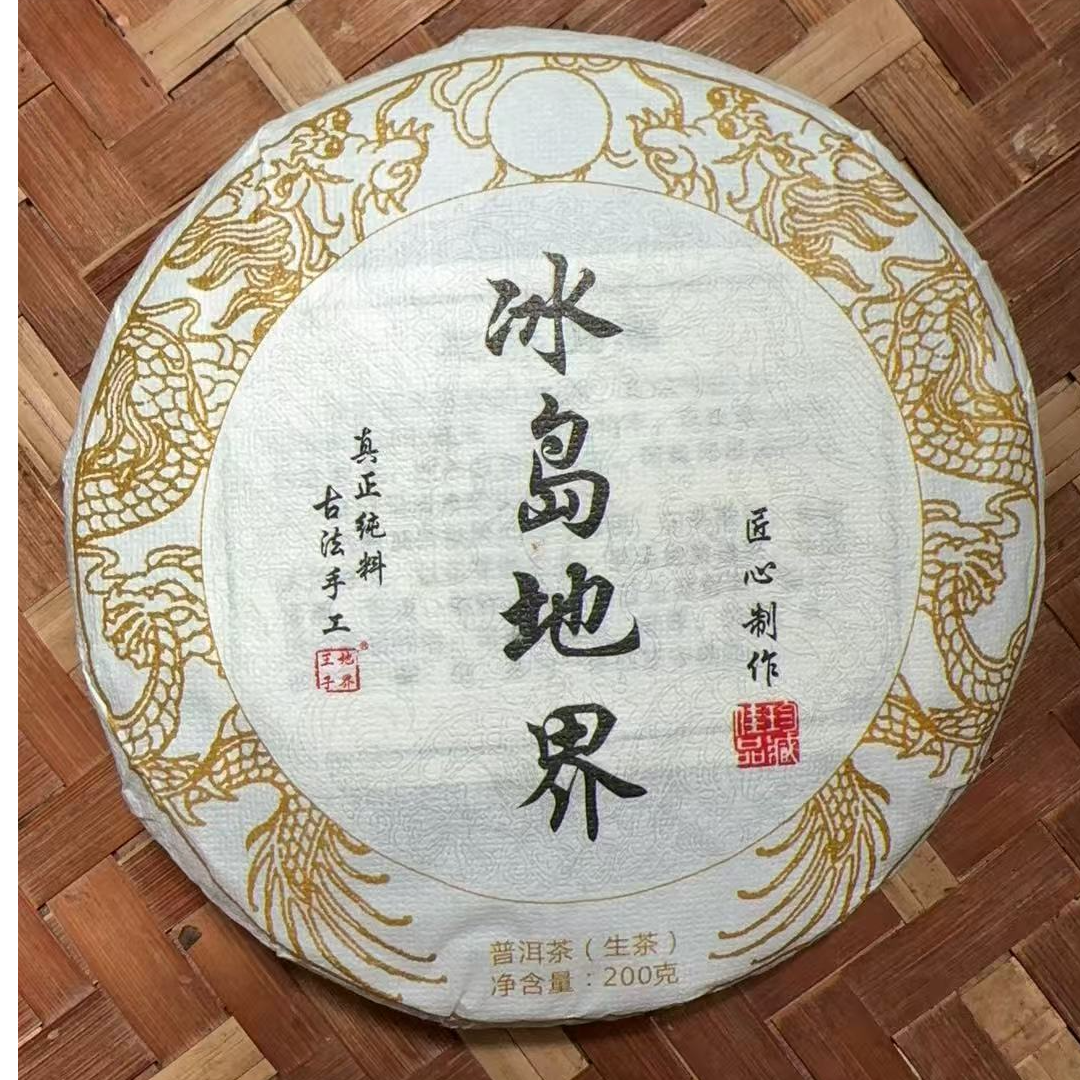 冰岛地界
匠心制作
珍藏佳品
真正纯料
古法手工
地界王子
®
普洱茶（生茶）
净含量：200克